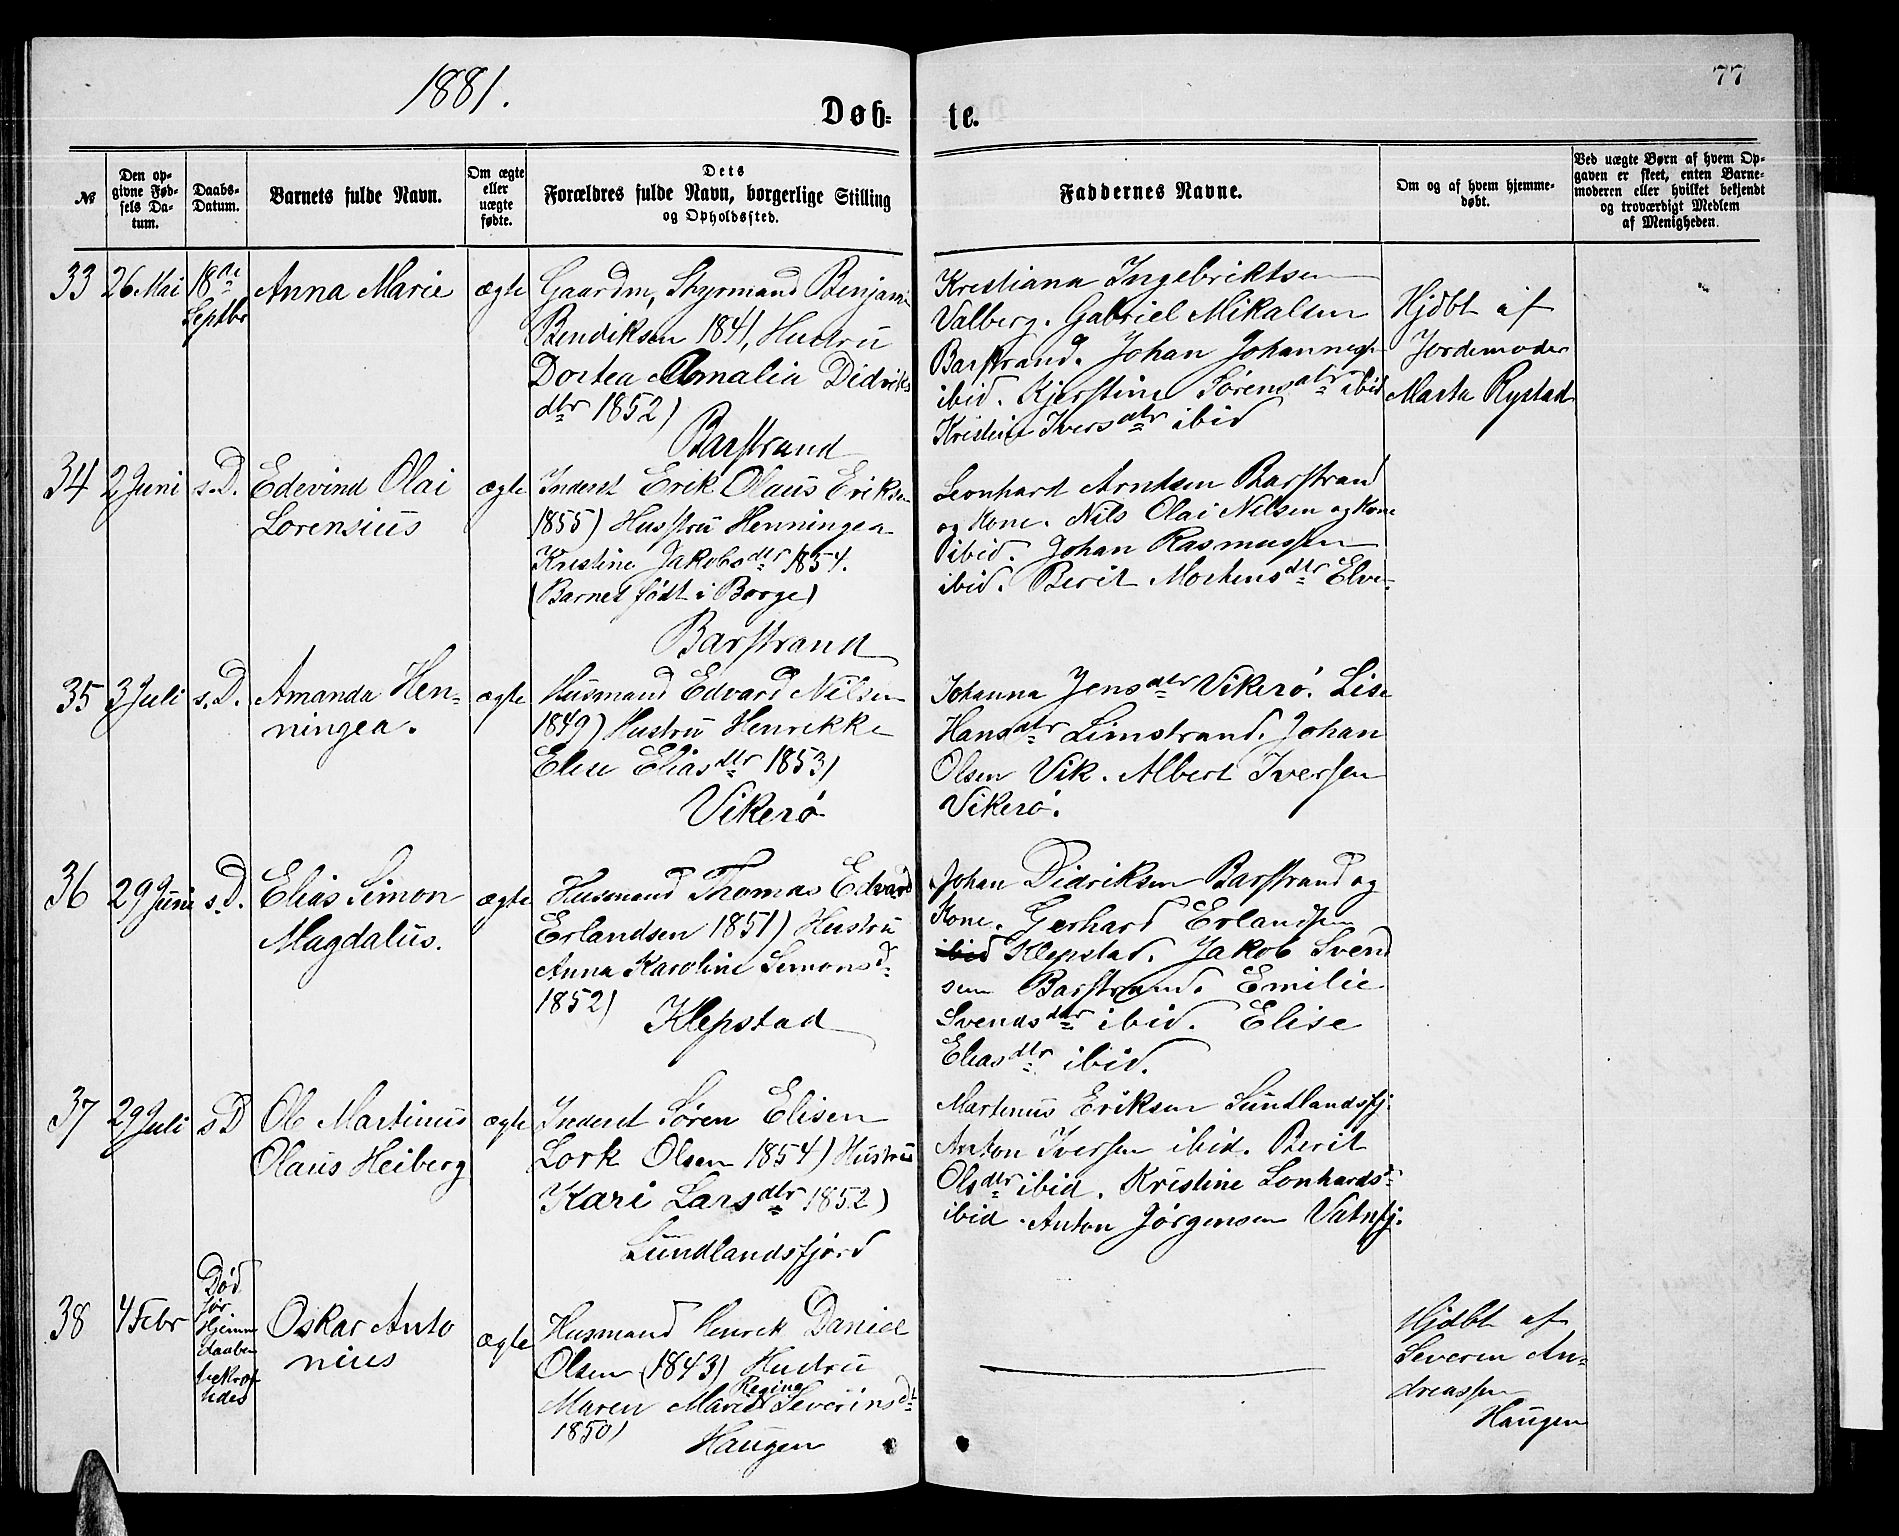 1881.
77
Døb-
te.
№
Den op-
givne Fød-
sels Da-
tum.
Daabs-
Datum.
Barnets fulde Navn.
Om ægte
eller
uægte
fødte.
Dets
Forældres fulde Navn, borgerlige Stilling
og Opholdssted.
Faddernes Navne.
Om og af hvem hjemme-
døbt.
Ved uægte Børn af hvem Op-
gaven er skeet, enten Barne-
moderen eller hvilket bekjendt
og troværdigt Medlem
af Menigheden.
33
26 Mai
18de
Septbr
Anna Marie
ægte
Gaardm, Styrmand Benjami
Bendiksen 1841, Hustru
Dortea Amalia Didriks
dtr 1852)
Barstrand
Kristiana Ingebriktsen
Valberg. Gabriel Mikalsen
Barstrand. Johan Johannes
ibid. Kjerstine Sørensdtr ibid
Kristine Iversdtr ibid
Hjdbt af
Jordemoder
Marta Rystad
34
2 Juni
s.D.
Edevind Olai
Lorensius
ægte
Inderst Erik Olaus Eriksen
1855) Husstru Henningea
Kristine Jakobsdtr 1854.
(Barnet født i Borge)
Barstrand
Leonhard Arntsen Barstrand
og Kone. Nils Olai Nilsen og Kone
ibid. Johan Rasmussen
ibid. Berit Mortensdtr Elve-
35
3 Juli
s.D.
Amanda Hen-
ningea.
ægte
Husmand Edvard Nilsen
1849) Hustru Henrikke
Elise Eliasdtr 1853)
Vikerø
Johanna Jensdtr Vikerø. Lise
Hansdtr Limstrand. Johan
Olsen Vik. Albert Iversen
Vikerø.
36
29 Juni
s.D.
Elias Simon
Magdalus.
ægte
Husmand Thomas Edvard
Erlandsen 1851) Hustru
Anna Karoline Simonsd.
1852)
Klepstad
Johan Didriksen Barstrand og
Kone. Gerhard Erlandsen
ibid Klepstad. Jakob Svend
sen Barstrand. Emilie
Svendsdtr ibid. Elise
Eliasdtr ibid.
37
29 Juli
s D
Ole Martinus
Olaus Heiberg
ægte
Inderst Søren Elisen
Lork Olsen 1854) Hustru
Kari Larsdtr 1852)
Sundlandsfjord
Martinus Eriksen Sundlandsfj.
Anton Iversen ibid. Berit
Olsdtr ibid. Kristine Lonhardsd
ibid. Anton Jørgensen Vatnfj.
38
4 Febr
Død
før
Hjemme
daaben
bekræf
tedes
Oskar Anto
nius
ægte
Husmand Henrik Daniel
Olsen (1843) Hustru
Maren Marie Regina Severinsdt
1850)
Haugen
Hjdbt af
Severin An-
dreassen
Haugen